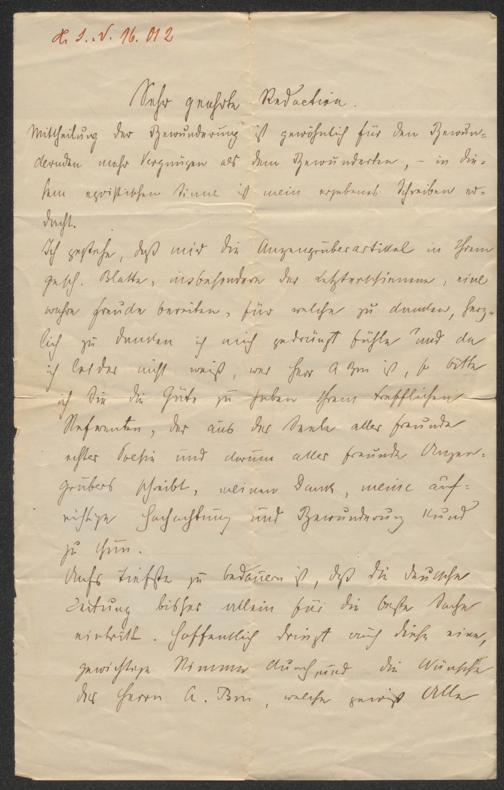 H. I. N. 16.012
Sehr geehrte Redaction.
Mittheilung der Bewunderung ist gewöhnlich für den Bewun-
dernden mehr Vergnügen als dem Bewunderten, – in die-
sem egoistischen Sinne ist mein ergebenes Schreiben er-
dacht.
Ich gestehe, daß mir die Anzengruberartikel in Ihrem
gesch. Blatte, insbesondere der letzterschienene, eine
wahre Freude bereiten, für welche zu danken, herz-
lich zu danken ich mich gedrängt fühle und da
ich leider nicht weiß, wer Herr A Bm ist, so bitte
ich Sie die Güte zu haben Ihrem trefflichen
Referenten, der aus der Seele aller Freunde
echter Poesie und darum aller Freunde Anzen-
grubers schreibt, meinen Dank, meine auf-
richtige Hochachtung und Bewunderung kund
zu thun.
Aufs Tiefste zu bedauern ist, daß die deutsche
Zeitung bisher allein für die beste Sache
eintritt. Hoffentlich dringt auch diese eine,
gewichtige Stimme durch und die Wünsche
des Herrn A. Bm, welche gewiß Alle